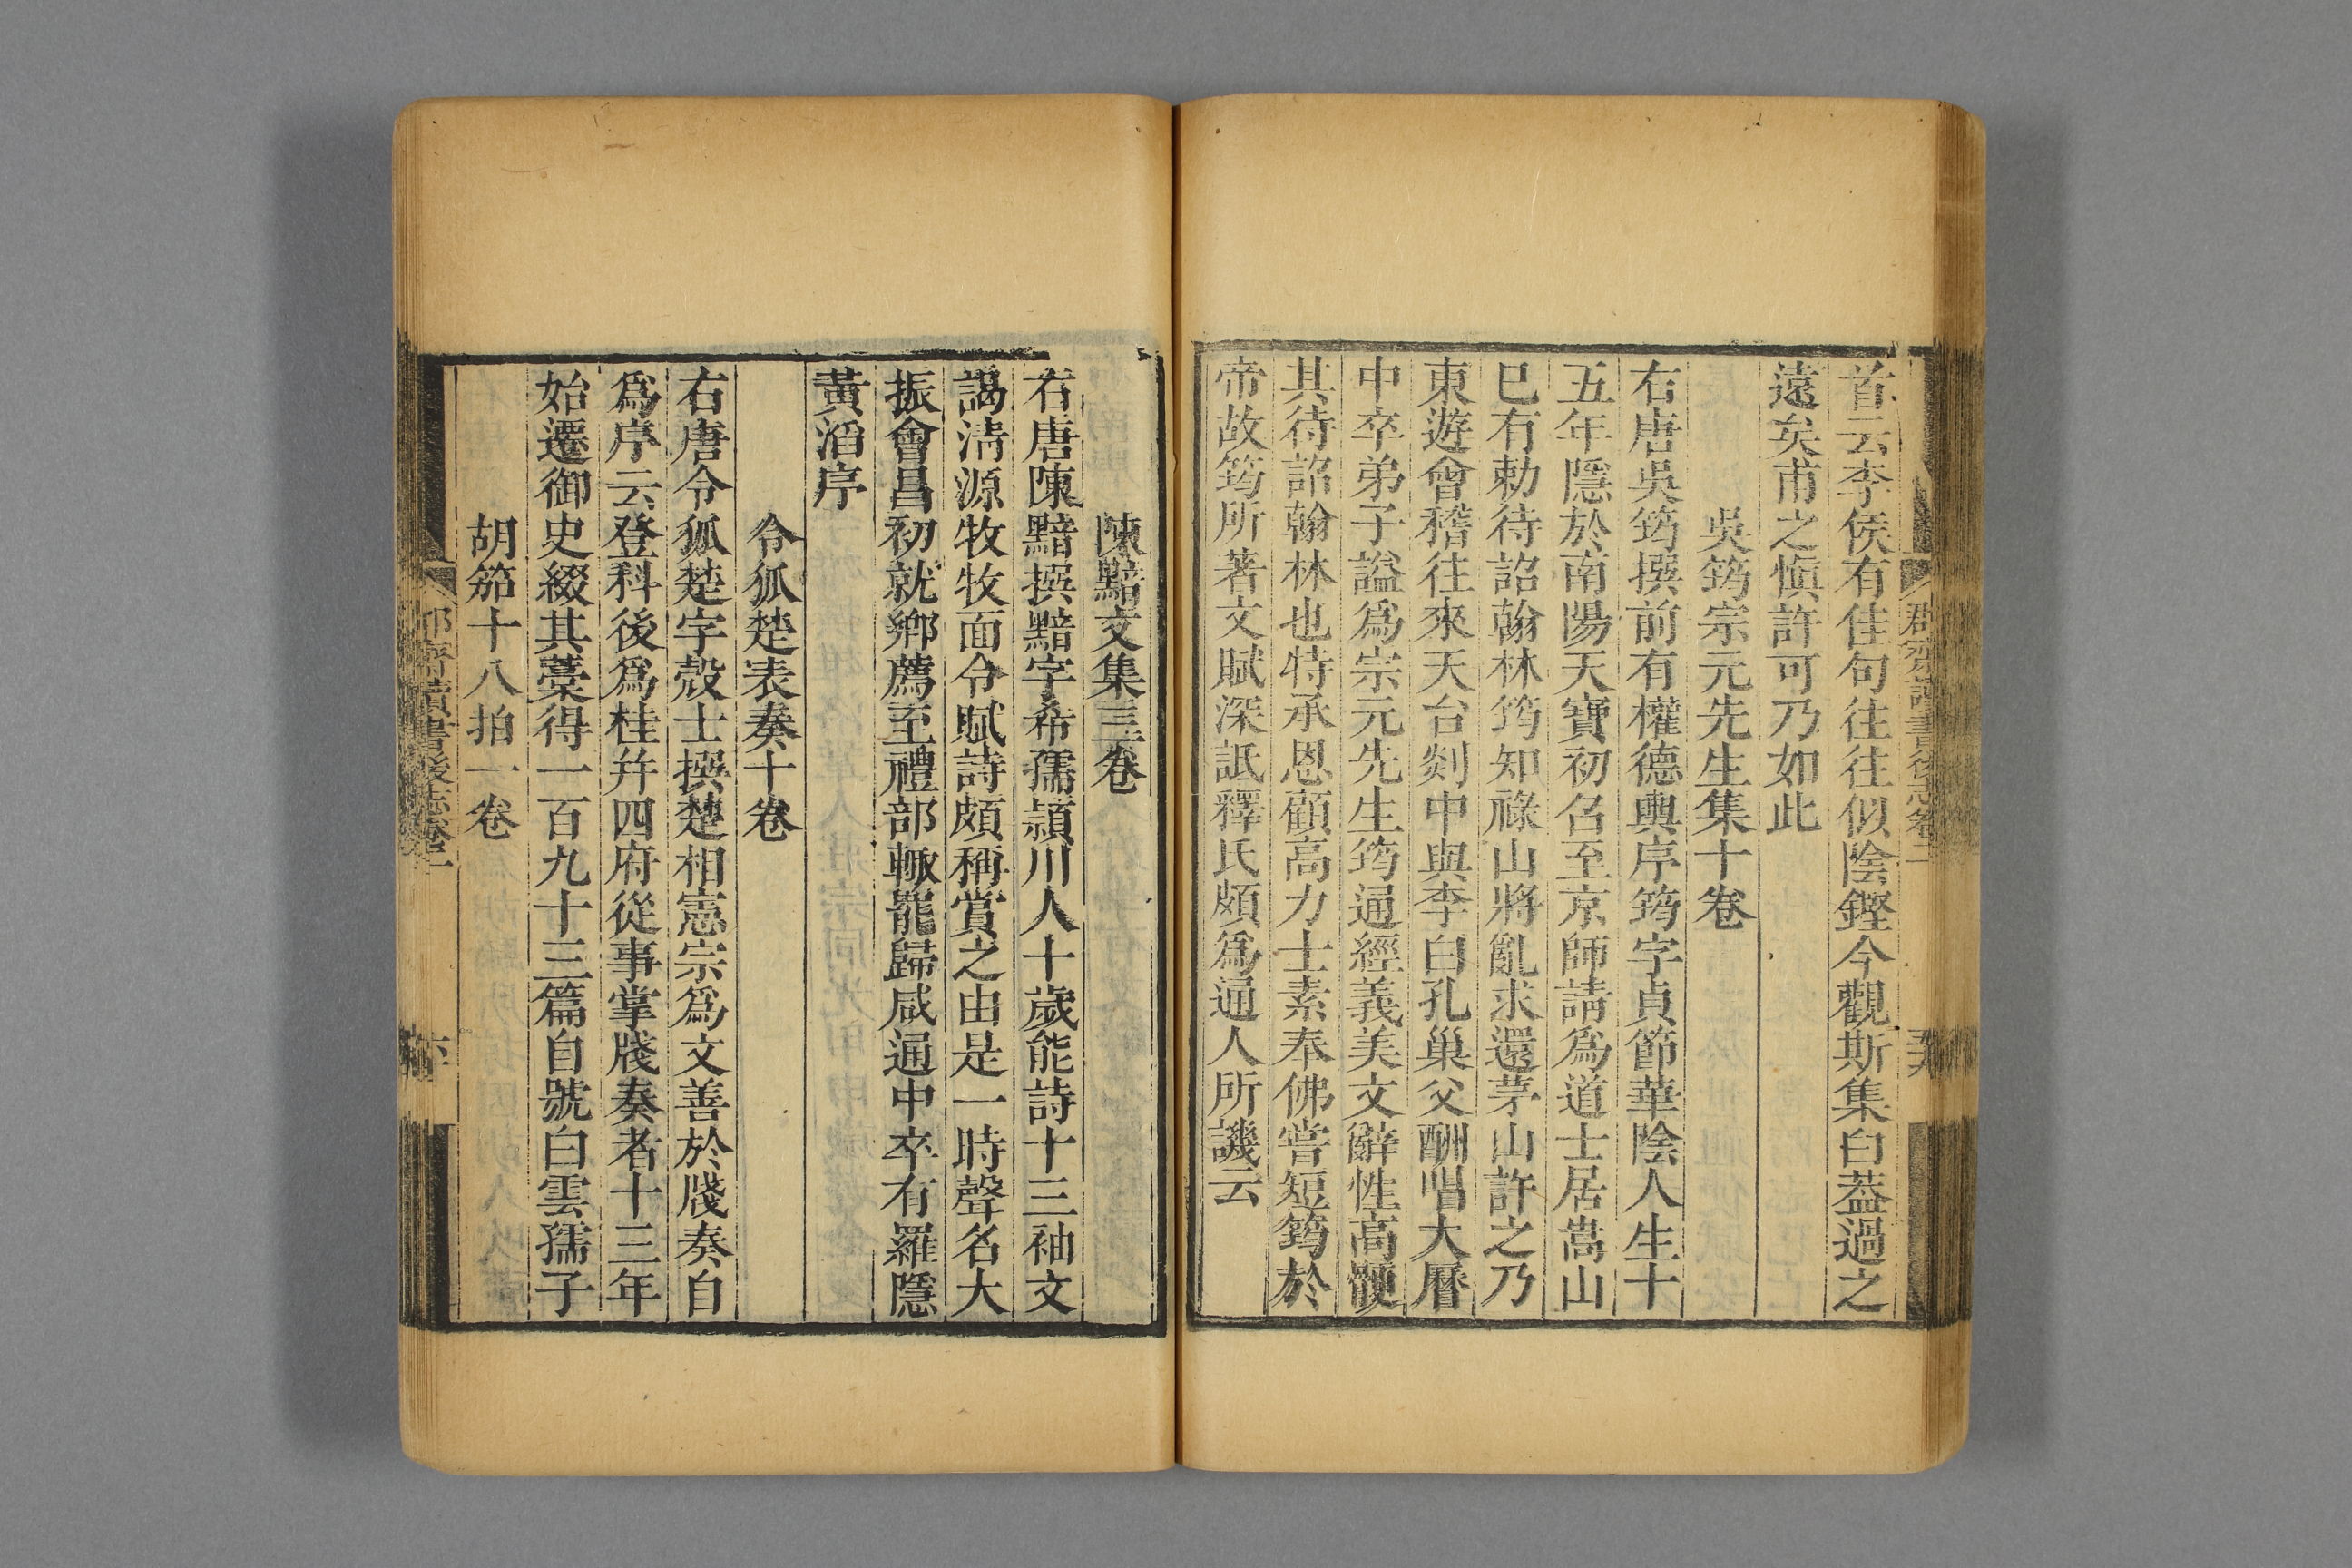 首云李侯有佳句往往似陰鏗今觀斯集白葢過之
遠矣甫之愼許可乃如此
吳筠宗元先生集十卷
右唐吳筠撰前有權德輿序筠字貞節華陰人生十
五年隱於南陽天寶初召至京師請爲道士居嵩山
已有勅待詔翰林筠知祿山將亂求還茅山許之乃
東遊會稽往來天台剡中與李白孔巢父酬唱大曆
中卒弟子謚爲宗元先生筠通經義美文辭性高鯁
其待詔翰林也特承恩顧高力士素奉佛嘗短筠於
帝故筠所著文賦深詆釋氏頗爲通人所譏云
陳黯文集三卷
右唐陳黯撰黯字希孺潁川人十歲能詩十三袖文
謁淸源牧牧面令賦詩頗稱賞之由是一時聲名大
振會昌初就鄕薦至禮部輙罷歸咸通中卒有羅隱
黃滔序
令狐楚表奏十卷
右唐令狐楚字殻士撰楚相憲宗爲文善於牋奏自
爲序云登科後爲桂幷四府從事掌牋奏者十三年
始遷御史綴其藁得一百九十三篇自號白雲孺子
胡笳十八拍一卷
郡齋讀書後志卷二